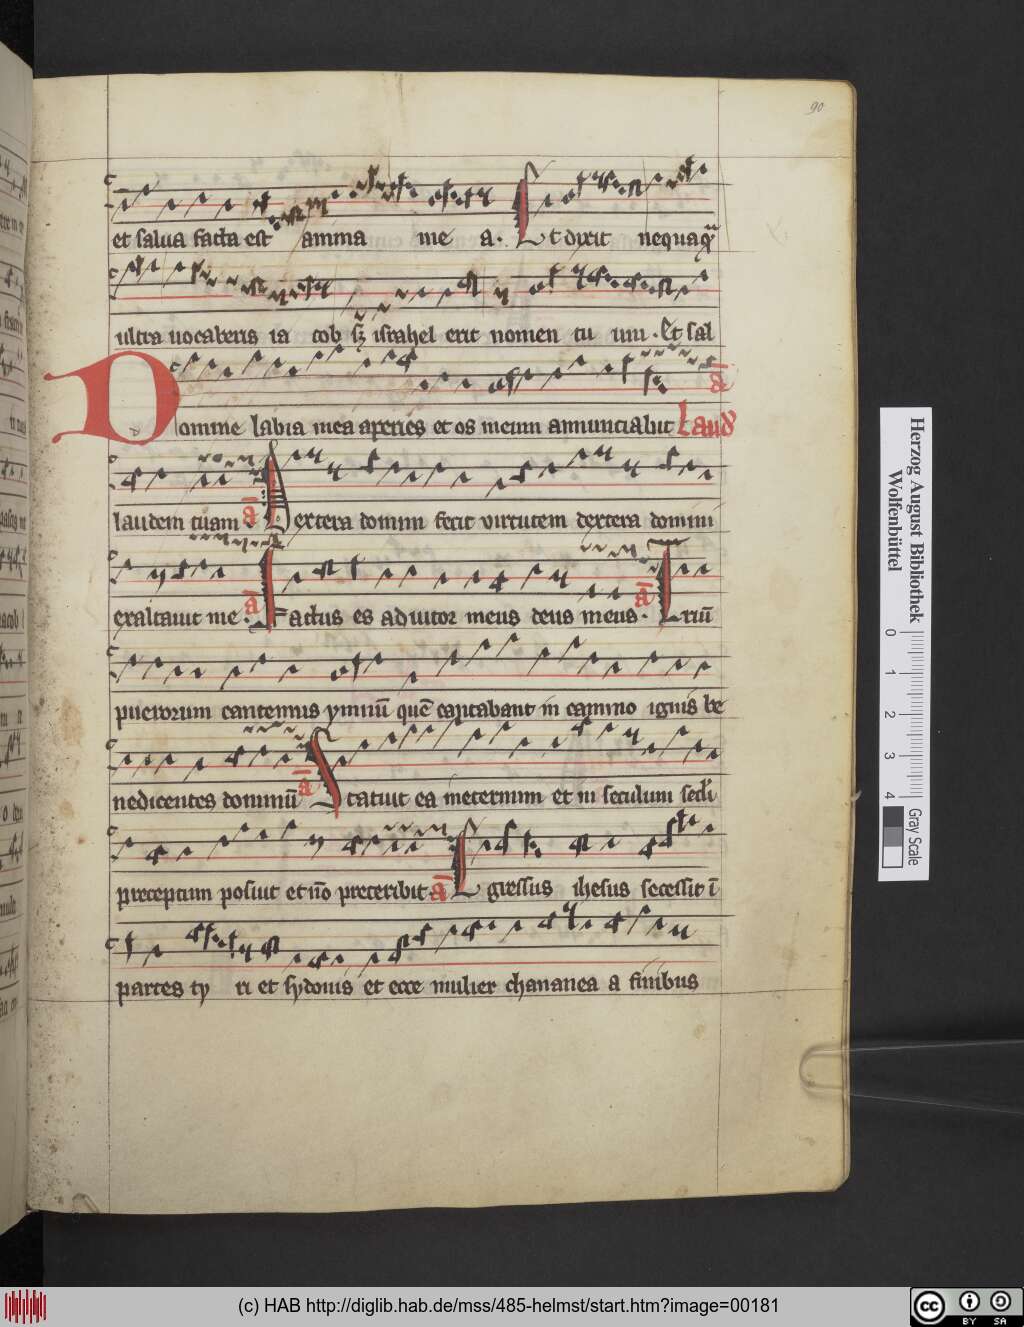 90
et salua facta est amma me a. Et dixit nequaq̄
ultra uocaberis ia cob sꝫ israhel erit nomen tu um. Et sal
Domine labia mea aperies et os meum annunciabit Laud
laudem tuam ā Dextera domini fecit virtutem dextera domini
exaltauit me. ā Factus es adiutor meus deus meus. ā Triū
puerorum cantemus ymnū quē cantabant in camino ignis be
nedicentes dominū ā Statuit ea in eternum et in seculum secli
preceptum posuit et nō preteribit ā Egressus ihesus secessit ī
partes ty ri et sydonis et ecce mulier chananea a finibus
Herzog August Bibliothek
Wolfenbüttel
0 1 2 3 4
Gray Scale
(c) HAB http://diglib.hab.de/mss/485-helmst/start.htm?image=00181
cc BY SA